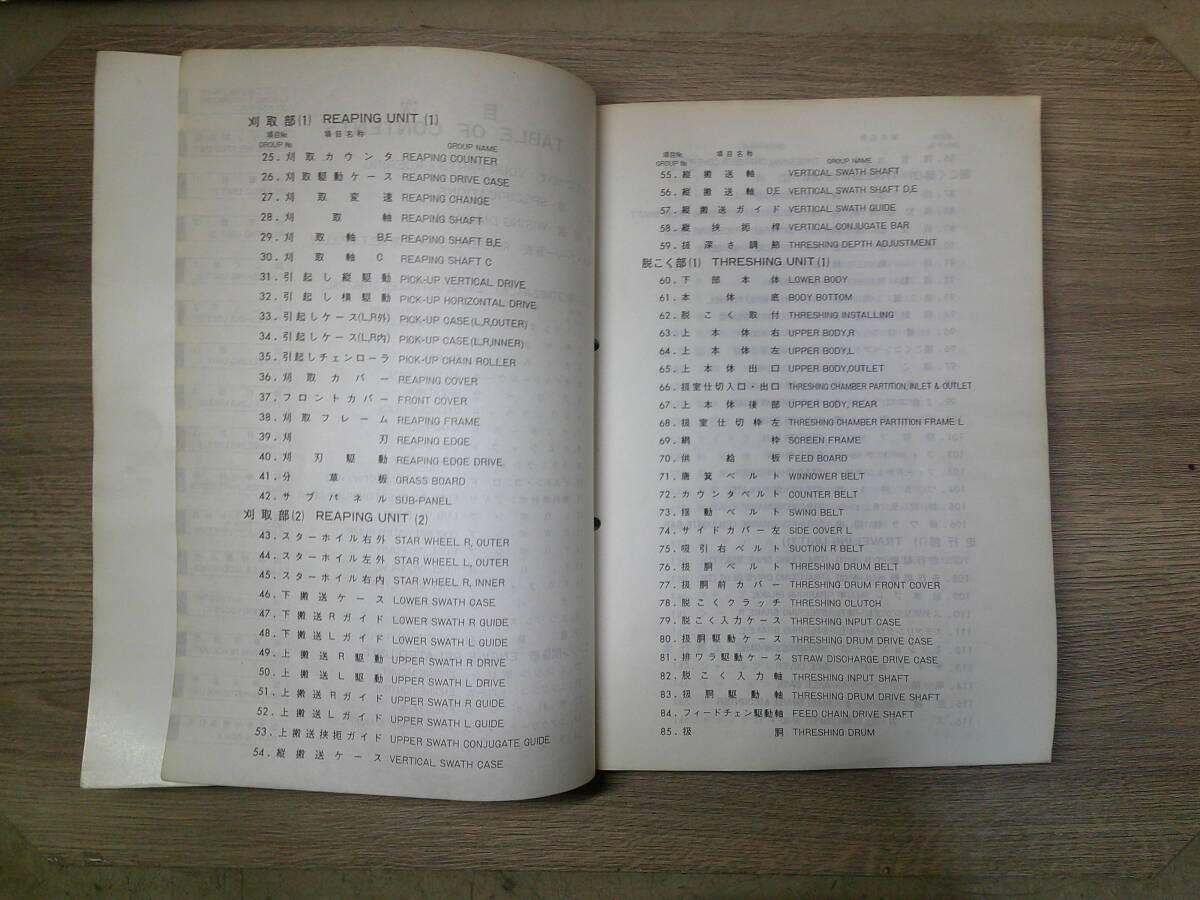 刈取部(1) REAPING UNIT (1)
項目№ 項目名称
GROUP № GROUP NAME
25. 刈取カウンタ REAPING COUNTER
26. 刈取駆動ケース REAPING DRIVE CASE
27. 刈取変速 REAPING CHANGE
28. 刈取軸 REAPING SHAFT
29. 刈取軸 B,E REAPING SHAFT B,E
30. 刈取軸 C REAPING SHAFT C
31. 引起し縦駆動 PICK-UP VERTICAL DRIVE
32. 引起し横駆動 PICK-UP HORIZONTAL DRIVE
33. 引起しケース(L,R外) PICK-UP CASE(L,R,OUTER)
34. 引起しケース(L,R内) PICK-UP CASE(L,R,INNER)
35. 引起しチェンローラ PICK-UP CHAIN ROLLER
36. 刈取カバー REAPING COVER
37. フロントカバー FRONT COVER
38. 刈取フレーム REAPING FRAME
39. 刈刃 REAPING EDGE
40. 刈刃駆動 REAPING EDGE DRIVE
41. 分草板 GRASS BOARD
42. サブパネル SUB-PANEL
刈取部(2) REAPING UNIT (2)
43. スターホイル右外 STAR WHEEL R, OUTER
44. スターホイル左外 STAR WHEEL L, OUTER
45. スターホイル右内 STAR WHEEL R, INNER
46. 下搬送ケース LOWER SWATH CASE
47. 下搬送Rガイド LOWER SWATH R GUIDE
48. 下搬送Lガイド LOWER SWATH L GUIDE
49. 上搬送R駆動 UPPER SWATH R DRIVE
50. 上搬送L駆動 UPPER SWATH L DRIVE
51. 上搬送Rガイド UPPER SWATH R GUIDE
52. 上搬送Lガイド UPPER SWATH L GUIDE
53. 上搬送挾扼ガイド UPPER SWATH CONJUGATE GUIDE
54. 縦搬送ケース VERTICAL SWATH CASE
項目№ 項目名称
GROUP № GROUP NAME
55. 縦搬送軸 VERTICAL SWATH SHAFT
56. 縦搬送軸 D,E VERTICAL SWATH SHAFT D,E
57. 縦搬送ガイド VERTICAL SWATH GUIDE
58. 縦挾扼桿 VERTICAL CONJUGATE BAR
59. 扱深さ調節 THRESHING DEPTH ADJUSTMENT
脱こく部(1) THRESHING UNIT (1)
60. 下部本体 LOWER BODY
61. 本体底 BODY BOTTOM
62. 脱こく取付 THRESHING INSTALLING
63. 上本体右 UPPER BODY,R
64. 上本体左 UPPER BODY,L
65. 上本体出口 UPPER BODY,OUTLET
66. 扱室仕切入口・出口 THRESHING CHAMBER PARTITION, INLET & OUTLET
67. 上本体後部 UPPER BODY, REAR
68. 扱室仕切枠左 THRESHING CHAMBER PARTITION FRAME L
69. 網枠 SCREEN FRAME
70. 供給板 FEED BOARD
71. 唐箕ベルト WINNOWER BELT
72. カウンタベルト COUNTER BELT
73. 揺動ベルト SWING BELT
74. サイドカバー左 SIDE COVER L
75. 吸引右ベルト SUCTION R BELT
76. 扱胴ベルト THRESHING DRUM BELT
77. 扱胴前カバー THRESHING DRUM FRONT COVER
78. 脱こくクラッチ THRESHING CLUTCH
79. 脱こく入力ケース THRESHING INPUT CASE
80. 扱胴駆動ケース THRESHING DRUM DRIVE CASE
81. 排ワラ駆動ケース STRAW DISCHARGE DRIVE CASE
82. 脱こく入力軸 THRESHING INPUT SHAFT
83. 扱胴駆動軸 THRESHING DRUM DRIVE SHAFT
84. フィードチェン駆動軸 FEED CHAIN DRIVE SHAFT
85. 扱胴 THRESHING DRUM